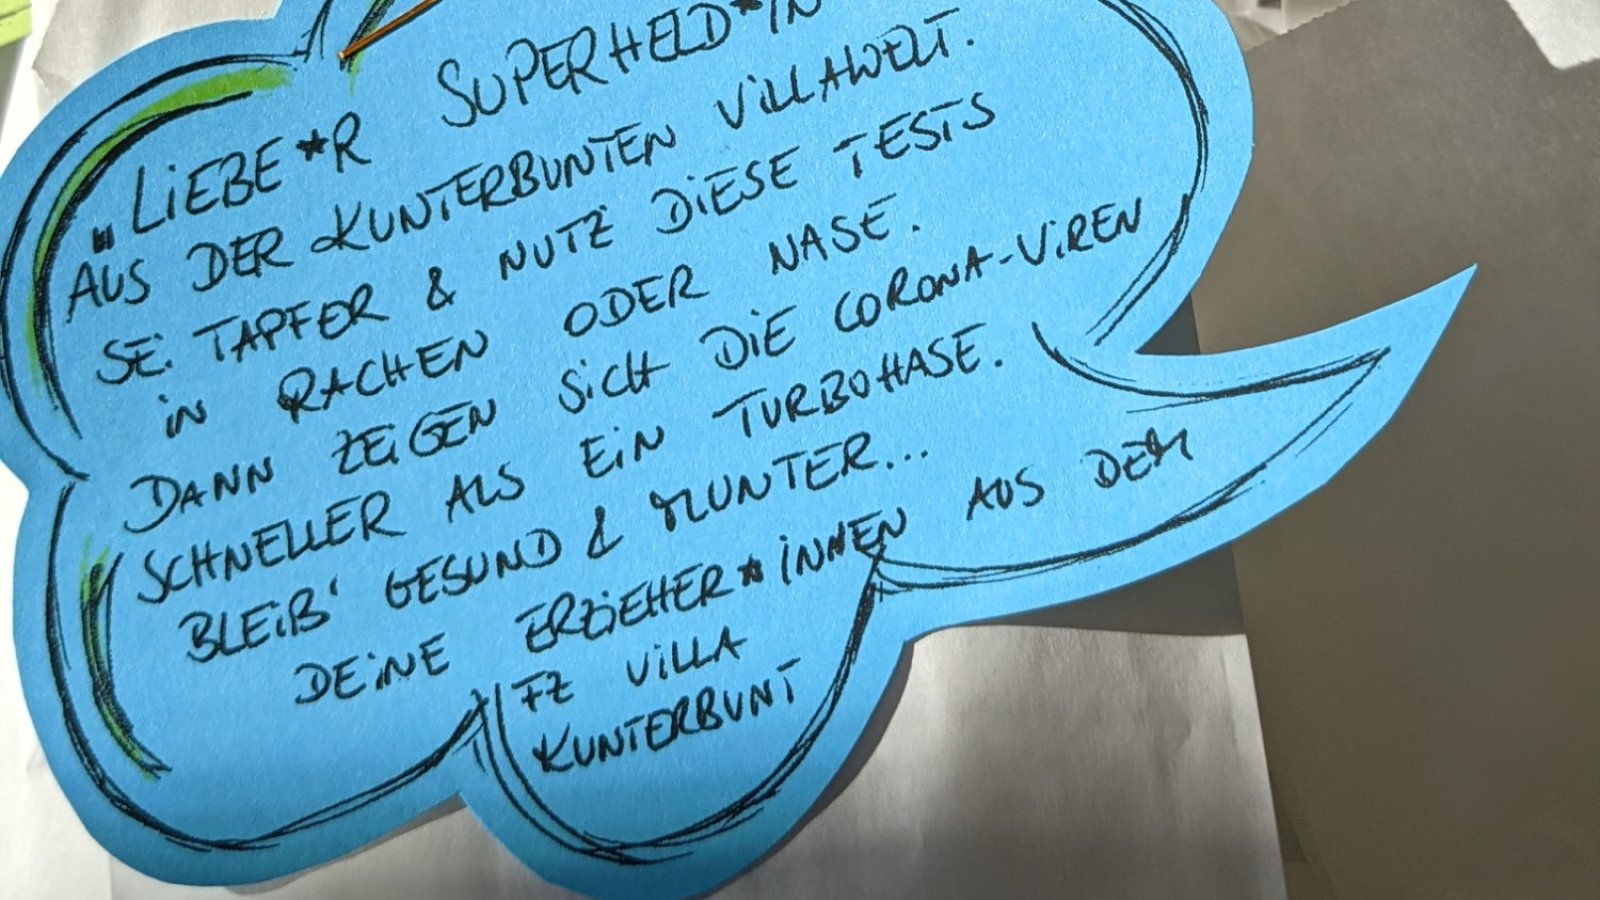 „LiEBE*R SUPERHELD*iN
AUS DER KUNTERBUNTEN ViLLAWELT.
SEi TAPFER & NUTZ' DiESE TESTS
iN RACHEN ODER NASE.
DANN ZEiGEN SiCH DiE CORONA-ViREN
SCHNELLER ALS EiN TURBOHASE.
BLEiB' GESUND & MUNTER...
DEiNE ERZiEHER*iNNEN AUS DEM
FZ ViLLA
KUNTERBUNT